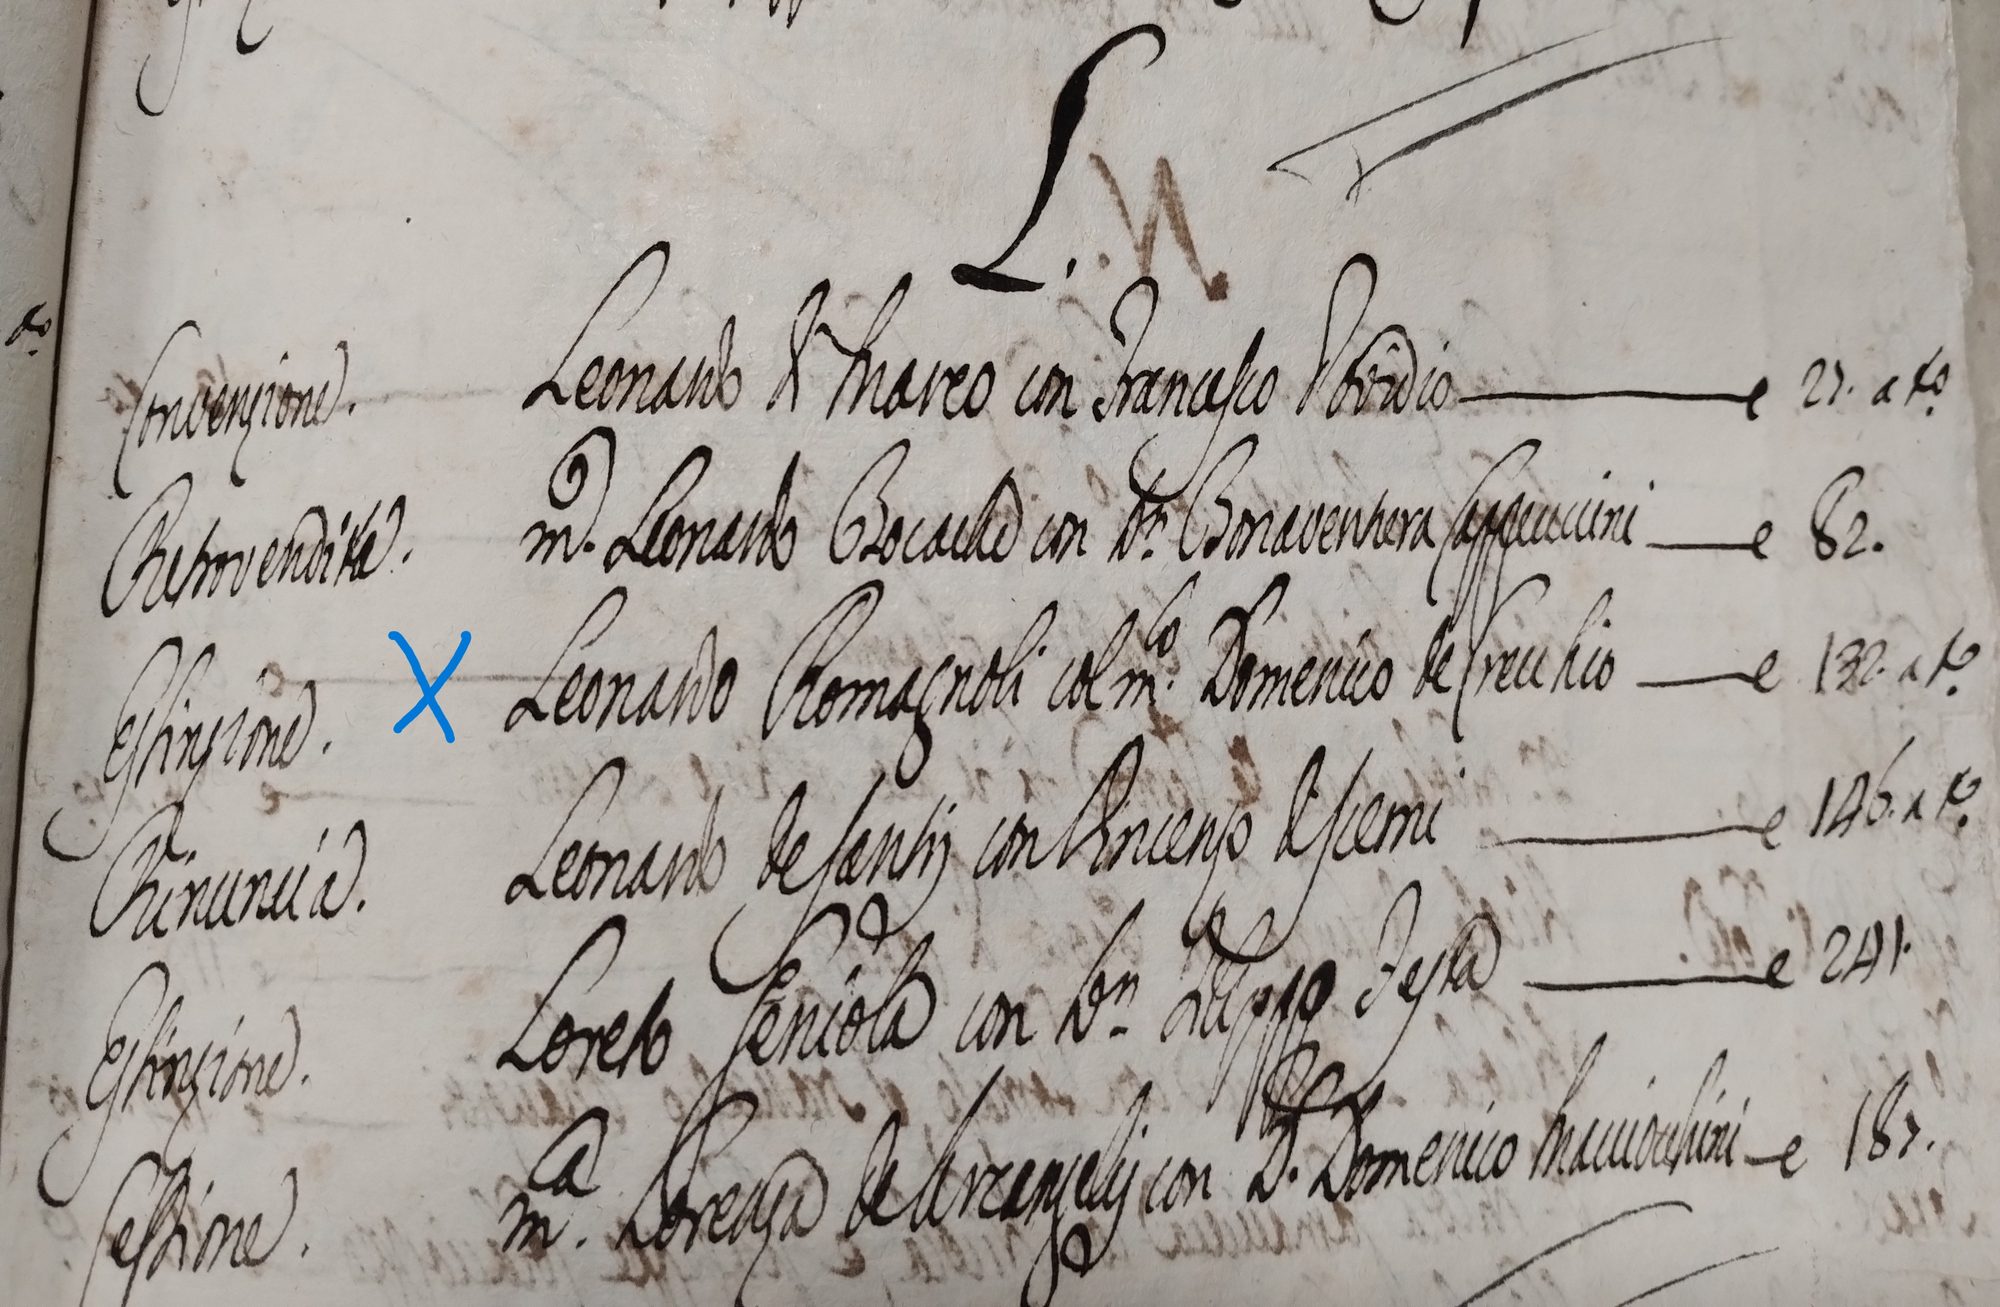 L. N.
Convenzione. Leonardo di Marco con Francesco d'Ovidio e 27. a to.
Retrovendita. mo. Leonardo con Dn. Bonaventura Cappuccini e 82.
Estinzione. X Leonardo Romagnoli col mco. Domenico del Vecchio e 132. a to.
Rinuncia. Leonardo de Santis con Vincenzo di Iterni e 146. a to.
Estinzione. Loreto con Dn. Filippo Testa e 241.
Cessione. ma. Lorenza de Arcangelis con D. Domenico Macciocchini e 187.